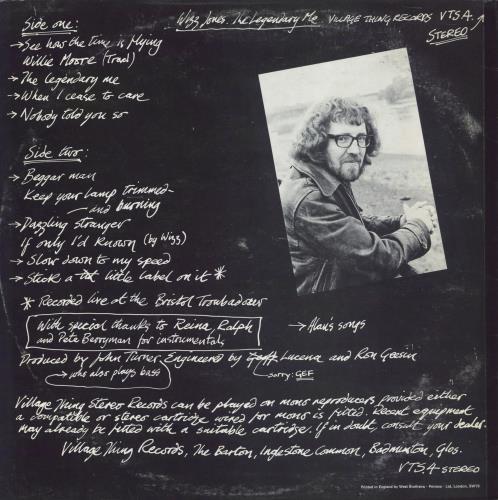 Side one:
Wizz Jones. The Legendary Me. VILLAGE THING RECORDS VTS.4.
STEREO
→ See how the time is flying
Willie Moore (Trad)
→ The legendary me
→ When I cease to care
→ Nobody told you so
Side two:
→ Beggar man
Keep your lamp trimmed
and burning
→ Dazzling stranger
If only I'd known (by Wizz)
→ Slow down to my speed
→ Stick a little label on it *
* Recorded live at the Bristol Troubadour
With special thanks to Reina, Ralph
and Pete Berryman for instrumentals
→ Alan's songs
Produced by John Turner. Engineered by Lucena and Ron Geesin
→ who also plays bass
sorry: GEF
Village Thing Stereo Records can be played on mono reproducers provided either
a compatible or stereo cartridge wired for mono is fitted. Recent equipment
may already be fitted with a suitable cartridge. If in doubt, consult your dealer.
Village Thing Records, The Barton, Inglestone Common, Badminton, Glos.
VTS.4 STEREO
Printed in England by West Brothers - Printers - Ltd., London, SW19